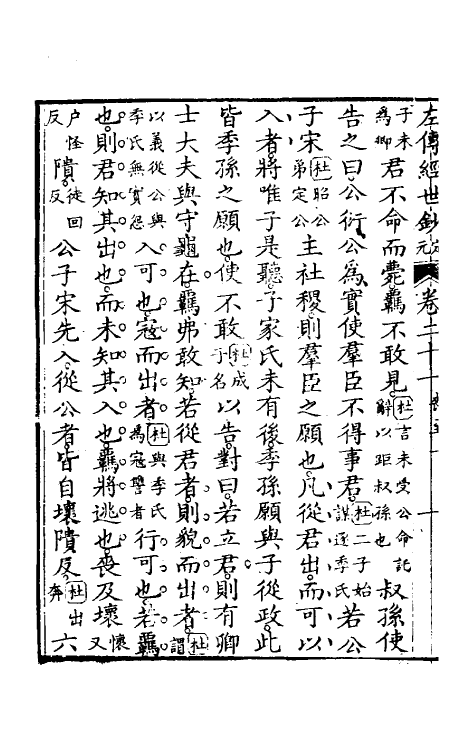 左傳經世鈔 卷二十一 一
子未為卿君不命而薨羈不敢見杜言未受公命託辭以距叔孫也叔孫使
告之曰公衍公為實使羣臣不得事君杜二子始謀逐季氏若公
子宋杜昭公弟定公主社稷則羣臣之願也凡從君出而可以
入者將唯子是聽子家氏未有後季孫願與子從政此
皆季孫之願也使不敢杜成子名以告對曰若立君則有卿
士大夫與守龜在羈弗敢知若從君者則貌而出者杜謂
以義從公與季氏無實怨入可也寇而出者杜與季氏為寇讐者行可也若羈
也則君知其出也而未知其入也羈將逃也喪及壞懷又
户怪反隤徒回反公子宋先入從公者皆自壞隤反杜出奔六